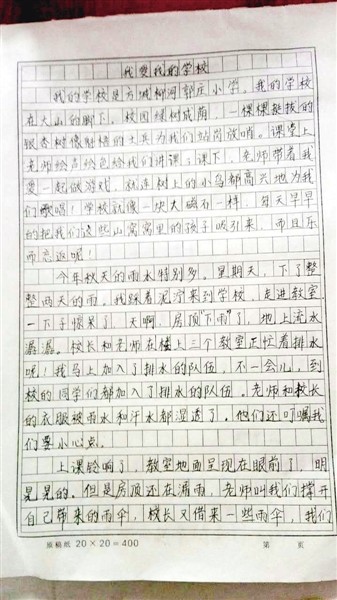 我爱我的学校
我的学校是方城柳河郭庄小学。我的学校
在大山的脚下，校园绿树成荫，一棵棵挺拔的
银杏树像威猛的士兵为我们站岗放哨。课堂上
老师绘声绘色给我们讲课；课下，老师带着我
爱一起做游戏，就连树上的小鸟都高兴地为我
们歌唱！学校就像一块大磁石一样，每天早早
的把我们这些山窝窝里的孩子吸引来，而且乐
而忘返呢！
今年秋天的雨水特别多。星期天，下了整
整两天的雨。我踩着泥泞来到学校，走进教室
一下子惊呆了，天啊，房顶"下雨"了，地上流水
潺潺。校长和老师在楼上三个教室正忙着排水
呢！我马上加入了排水的队伍，不一会儿，到
校的同学们都加入了排水的队伍。老师和校长
的衣服被雨水和汗水都湿透了，他们还叮嘱我
们要小心点。
上课铃响了，教室地面呈现在眼前了，明
晃晃的。但是房顶还在漏雨，老师叫我们撑开
自己带来的雨伞，校长又借来一些雨伞，我们
原稿纸 20×20=400 第 页